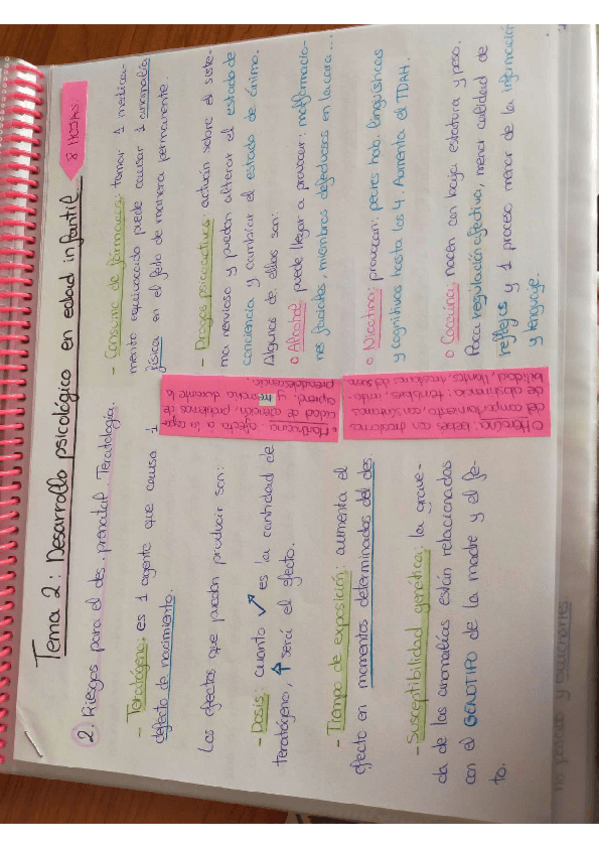 Tema 2: Desarrollo psicológico en edad infantil
8 HOJAS.
2. Riesgos para el des. prenatal. Teratología.
- Teratógeno: es 1 agente que causa 1
defecto de nacimiento.
Los efectos que pueden producir son:
- Dosis: cuanto ↗ es la cantidad de
teratógeno, ↑ será el efecto.
- Tiempo de exposición: aumenta el
efecto en momentos determinados del des.
- Susceptibilidad genética: la grave-
da de las anomalías están relacionadas
con el GENOTIPO de la madre y el fe-
to.
- Consumo de fármacos: tomar 1 medica-
mento equivocado puede causar 1 anomalía
física en el feto de manera permanente.
- Drogas psicoactivas: actúan sobre el siste-
ma nervioso y pueden alterar el estado de
conciencia y cambiar el estado de ánimo.
Algunas de ellas son:
o Alcohol: puede llegar a provocar: malformacio-
nes faciales, miembros defectuosos en la cara...
o Nicotina: provocan: peores hab. lingüísticas
y cognitivas hasta los 4. Aumenta el TDAH.
o Cocaína: nacen con baja estatura y peso.
Poca regulación afectiva, menor calidad de
reflejos y 1 proceso menor de la información
y lenguaje.
• Marihuana: afecta a la capa-
cidad de atención, problemas de
aprend. y memoria durante la
preadolescencia.
o Heroína: bebés con trastornos
del comportamiento, con síntomas
de abstinencia: temblores, irrita-
bilidad, llantos, trastornos del sueño